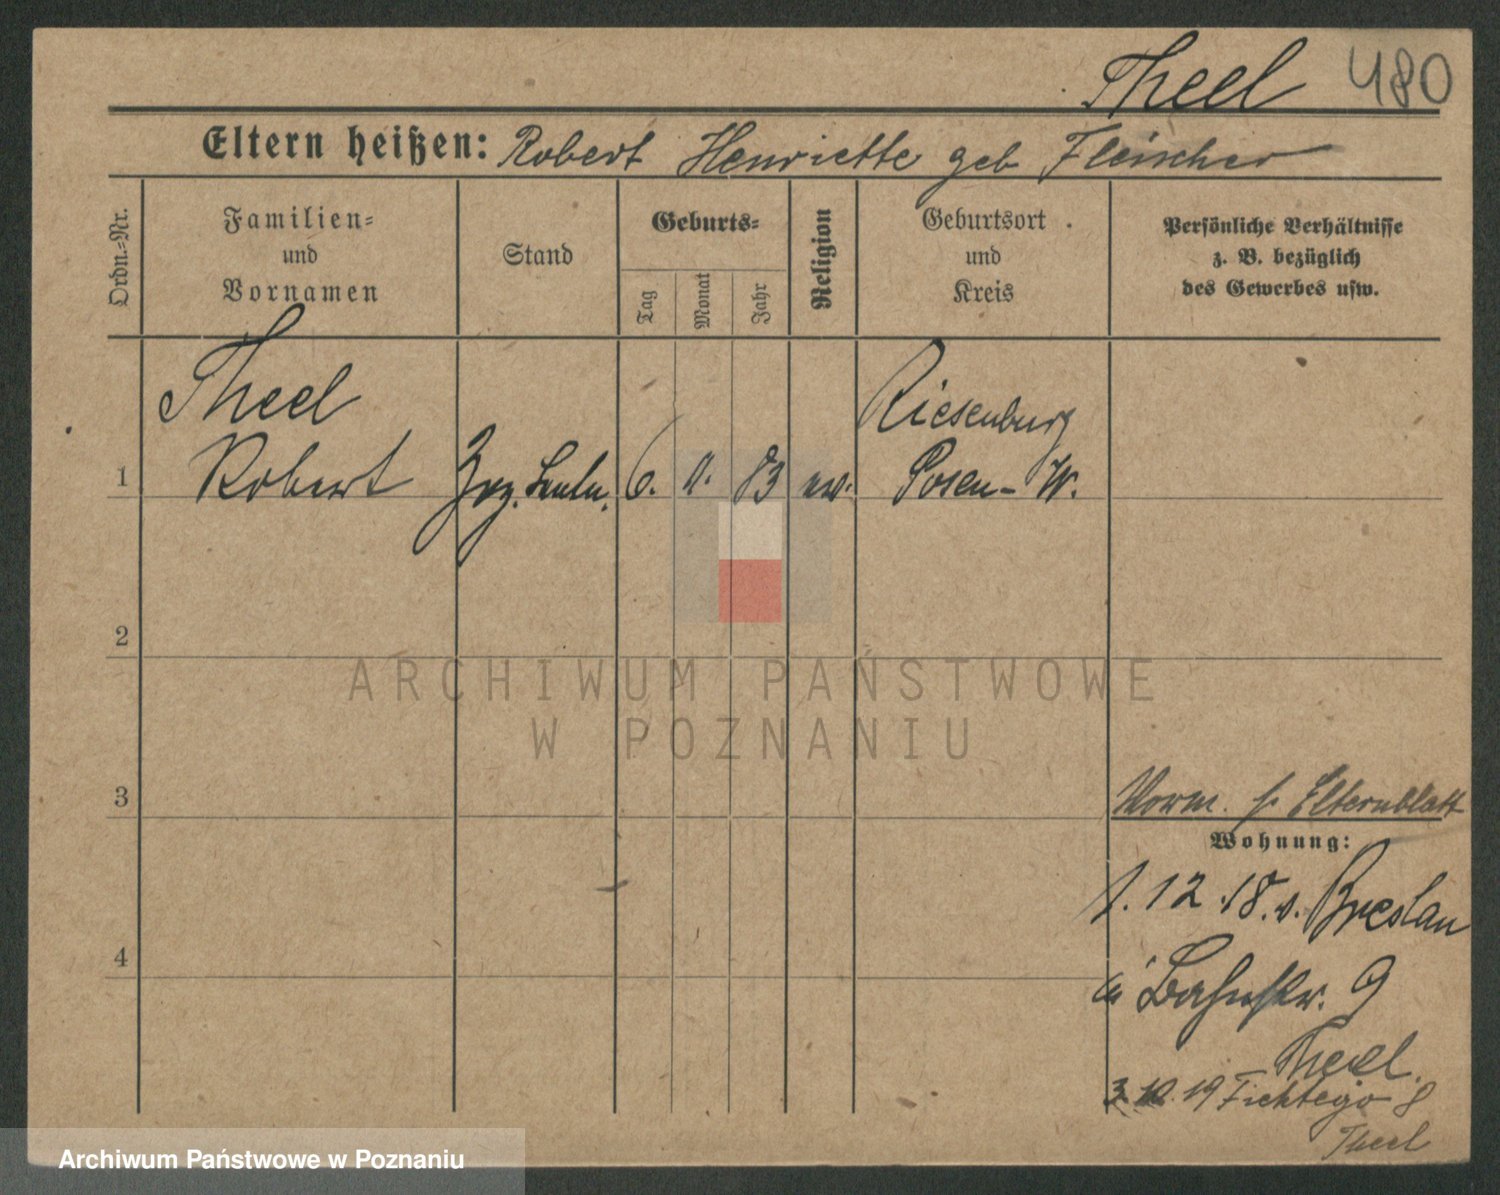 Theel 480
Eltern heißen: Robert Henriette geb Fleischer
Ordn.-Nr.
Familien-
und
Vornamen
Stand
Geburts-
Tag
Monat
Jahr
Religion
Geburtsort
und
Kreis
Persönliche Verhältnisse
z. B. bezüglich
des Gewerbes usw.
Theel
Riesenburg
1 Robert 6. 83 ev. Posen-W.
2
ARCHIWUM PAŃSTWOWE
W POZNANIU
3
Elternblatt
Wohnung:
1.12.18. v. Breslau
4
Bahnhstr. 9
Theel.
3.10.19 8
Theel
Archiwum Państwowe w Poznaniu